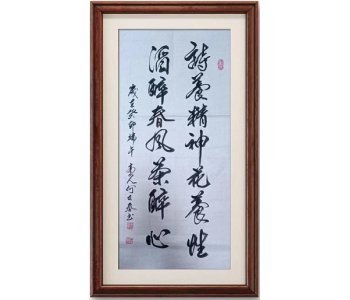 詩養精神花養性
酒醉春風茶醉心
歲在癸卯端午